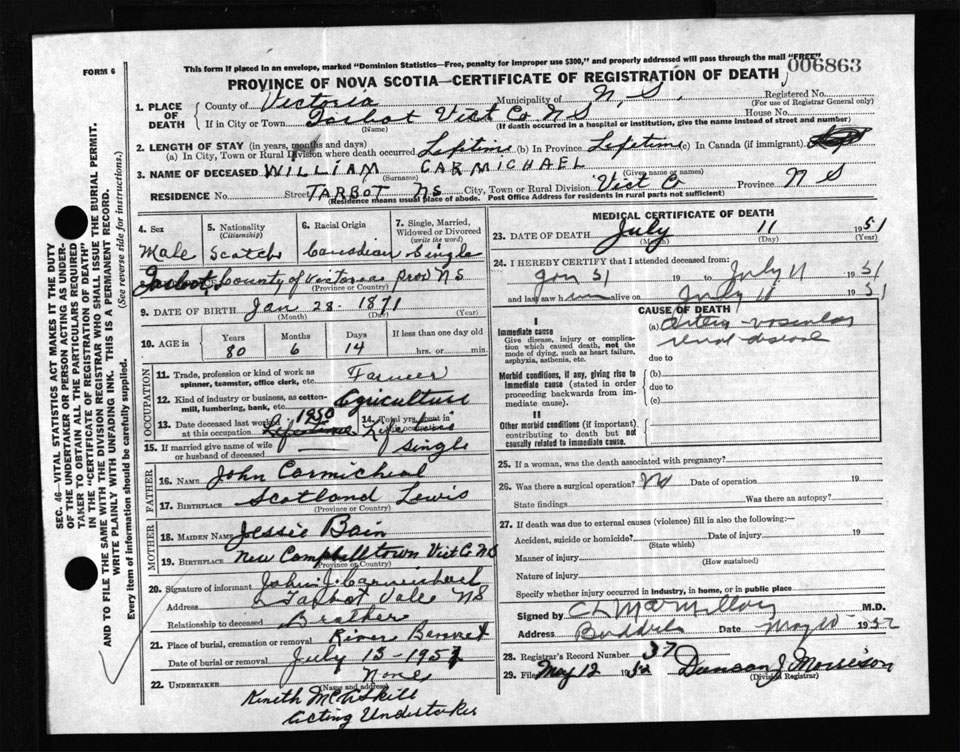 This form if placed in an envelope, marked "Dominion Statistics—Free, penalty for improper use $300," and properly addressed will pass through the mail "FREE"
FORM 6
006863
PROVINCE OF NOVA SCOTIA—CERTIFICATE OF REGISTRATION OF DEATH
1. PLACE OF DEATH
County of Victoria Municipality of N. S. Registered No.
(For use of Registrar General only)
If in City or Town Tarbot Vict Co NS House No.
(Name) (If death occurred in a hospital or institution, give the name instead of street and number)
2. LENGTH OF STAY (in years, months and days)
(a) In City, Town or Rural Division where death occurred Lifetime (b) In Province Lifetime (c) In Canada (if immigrant)
3. NAME OF DECEASED WILLIAM CARMICHAEL
(Surname) (Given name or names)
RESIDENCE No. Street TARBOT NS City, Town or Rural Division Vict Co Province N S
(Residence means usual place of abode. Post Office Address for residents in rural parts not sufficient)
4. Sex
Male
5. Nationality (Citizenship)
Scotch
6. Racial Origin
Canadian
7. Single, Married, Widowed or Divorced (write the word)
Single
Tarbot, County of Victoria prov NS
(Province or Country)
9. DATE OF BIRTH Jan 28 1871
(Month) (Day) (Year)
10. AGE in
Years Months Days If less than one day old
80 6 14 hrs. or min.
OCCUPATION
11. Trade, profession or kind of work as spinner, teamster, office clerk, etc. Farmer
12. Kind of industry or business, as cotton-mill, lumbering, bank, etc. Agriculture
13. Date deceased last worked at this occupation 1950
14. Total yrs. spent in this occupation Lifetime
15. If married give name of wife or husband of deceased Single
FATHER
16. NAME John Carmicheal
17. BIRTHPLACE Scotland Lewis
(Province or Country)
MOTHER
18. MAIDEN NAME Jessie Bain
19. BIRTHPLACE New Campbelltown Vict Co NS
(Province or Country)
20. Signature of informant John J. Carmichael
Address Tarbot Vale NS
Relationship to deceased Brother
21. Place of burial, cremation or removal River Bennet
Date of burial or removal July 13-1951
22. UNDERTAKER None
(Name and address)
Kenith McAskill
Acting Undertaker
MEDICAL CERTIFICATE OF DEATH
23. DATE OF DEATH July 11 1951
(Month) (Day) (Year)
24. I HEREBY CERTIFY that I attended deceased from:
Jan 51 19 to July 11 1951
and last saw him alive on July 11 1951
CAUSE OF DEATH
I
Immediate cause
Give disease, injury or complication which caused death, not the mode of dying, such as heart failure, asphyxia, asthenia, etc.
(a) arterio-vascular
renal disease
due to
Morbid conditions, if any, giving rise to immediate cause (stated in order proceeding backwards from immediate cause).
(b)
due to
(c)
II
Other morbid conditions (if important) contributing to death but not causally related to immediate cause.
25. If a woman, was the death associated with pregnancy?
26. Was there a surgical operation? No Date of operation 19
State findings Was there an autopsy?
27. If death was due to external causes (violence) fill in also the following:—
Accident, suicide or homicide? Date of injury 19
(State which)
Manner of injury
(How sustained)
Nature of injury
Specify whether injury occurred in industry, in home, or in public place
Signed by C L MacMillan M.D.
Address Baddeck Date May 10 1952
28. Registrar's Record Number 37
29. Filed May 12 1952 Duncan J Morrison
(Division Registrar)
SEC. 46—VITAL STATISTICS ACT MAKES IT THE DUTY
OF THE UNDERTAKER OR PERSON ACTING AS UNDER-
TAKER TO OBTAIN ALL THE PARTICULARS REQUIRED
IN THE "CERTIFICATE OF REGISTRATION OF DEATH"
AND TO FILE THE SAME WITH THE DIVISION REGISTRAR WHO SHALL ISSUE THE BURIAL PERMIT.
WRITE PLAINLY WITH UNFADING INK. THIS IS A PERMANENT RECORD.
Every item of information should be carefully supplied. (See reverse side for instructions.)